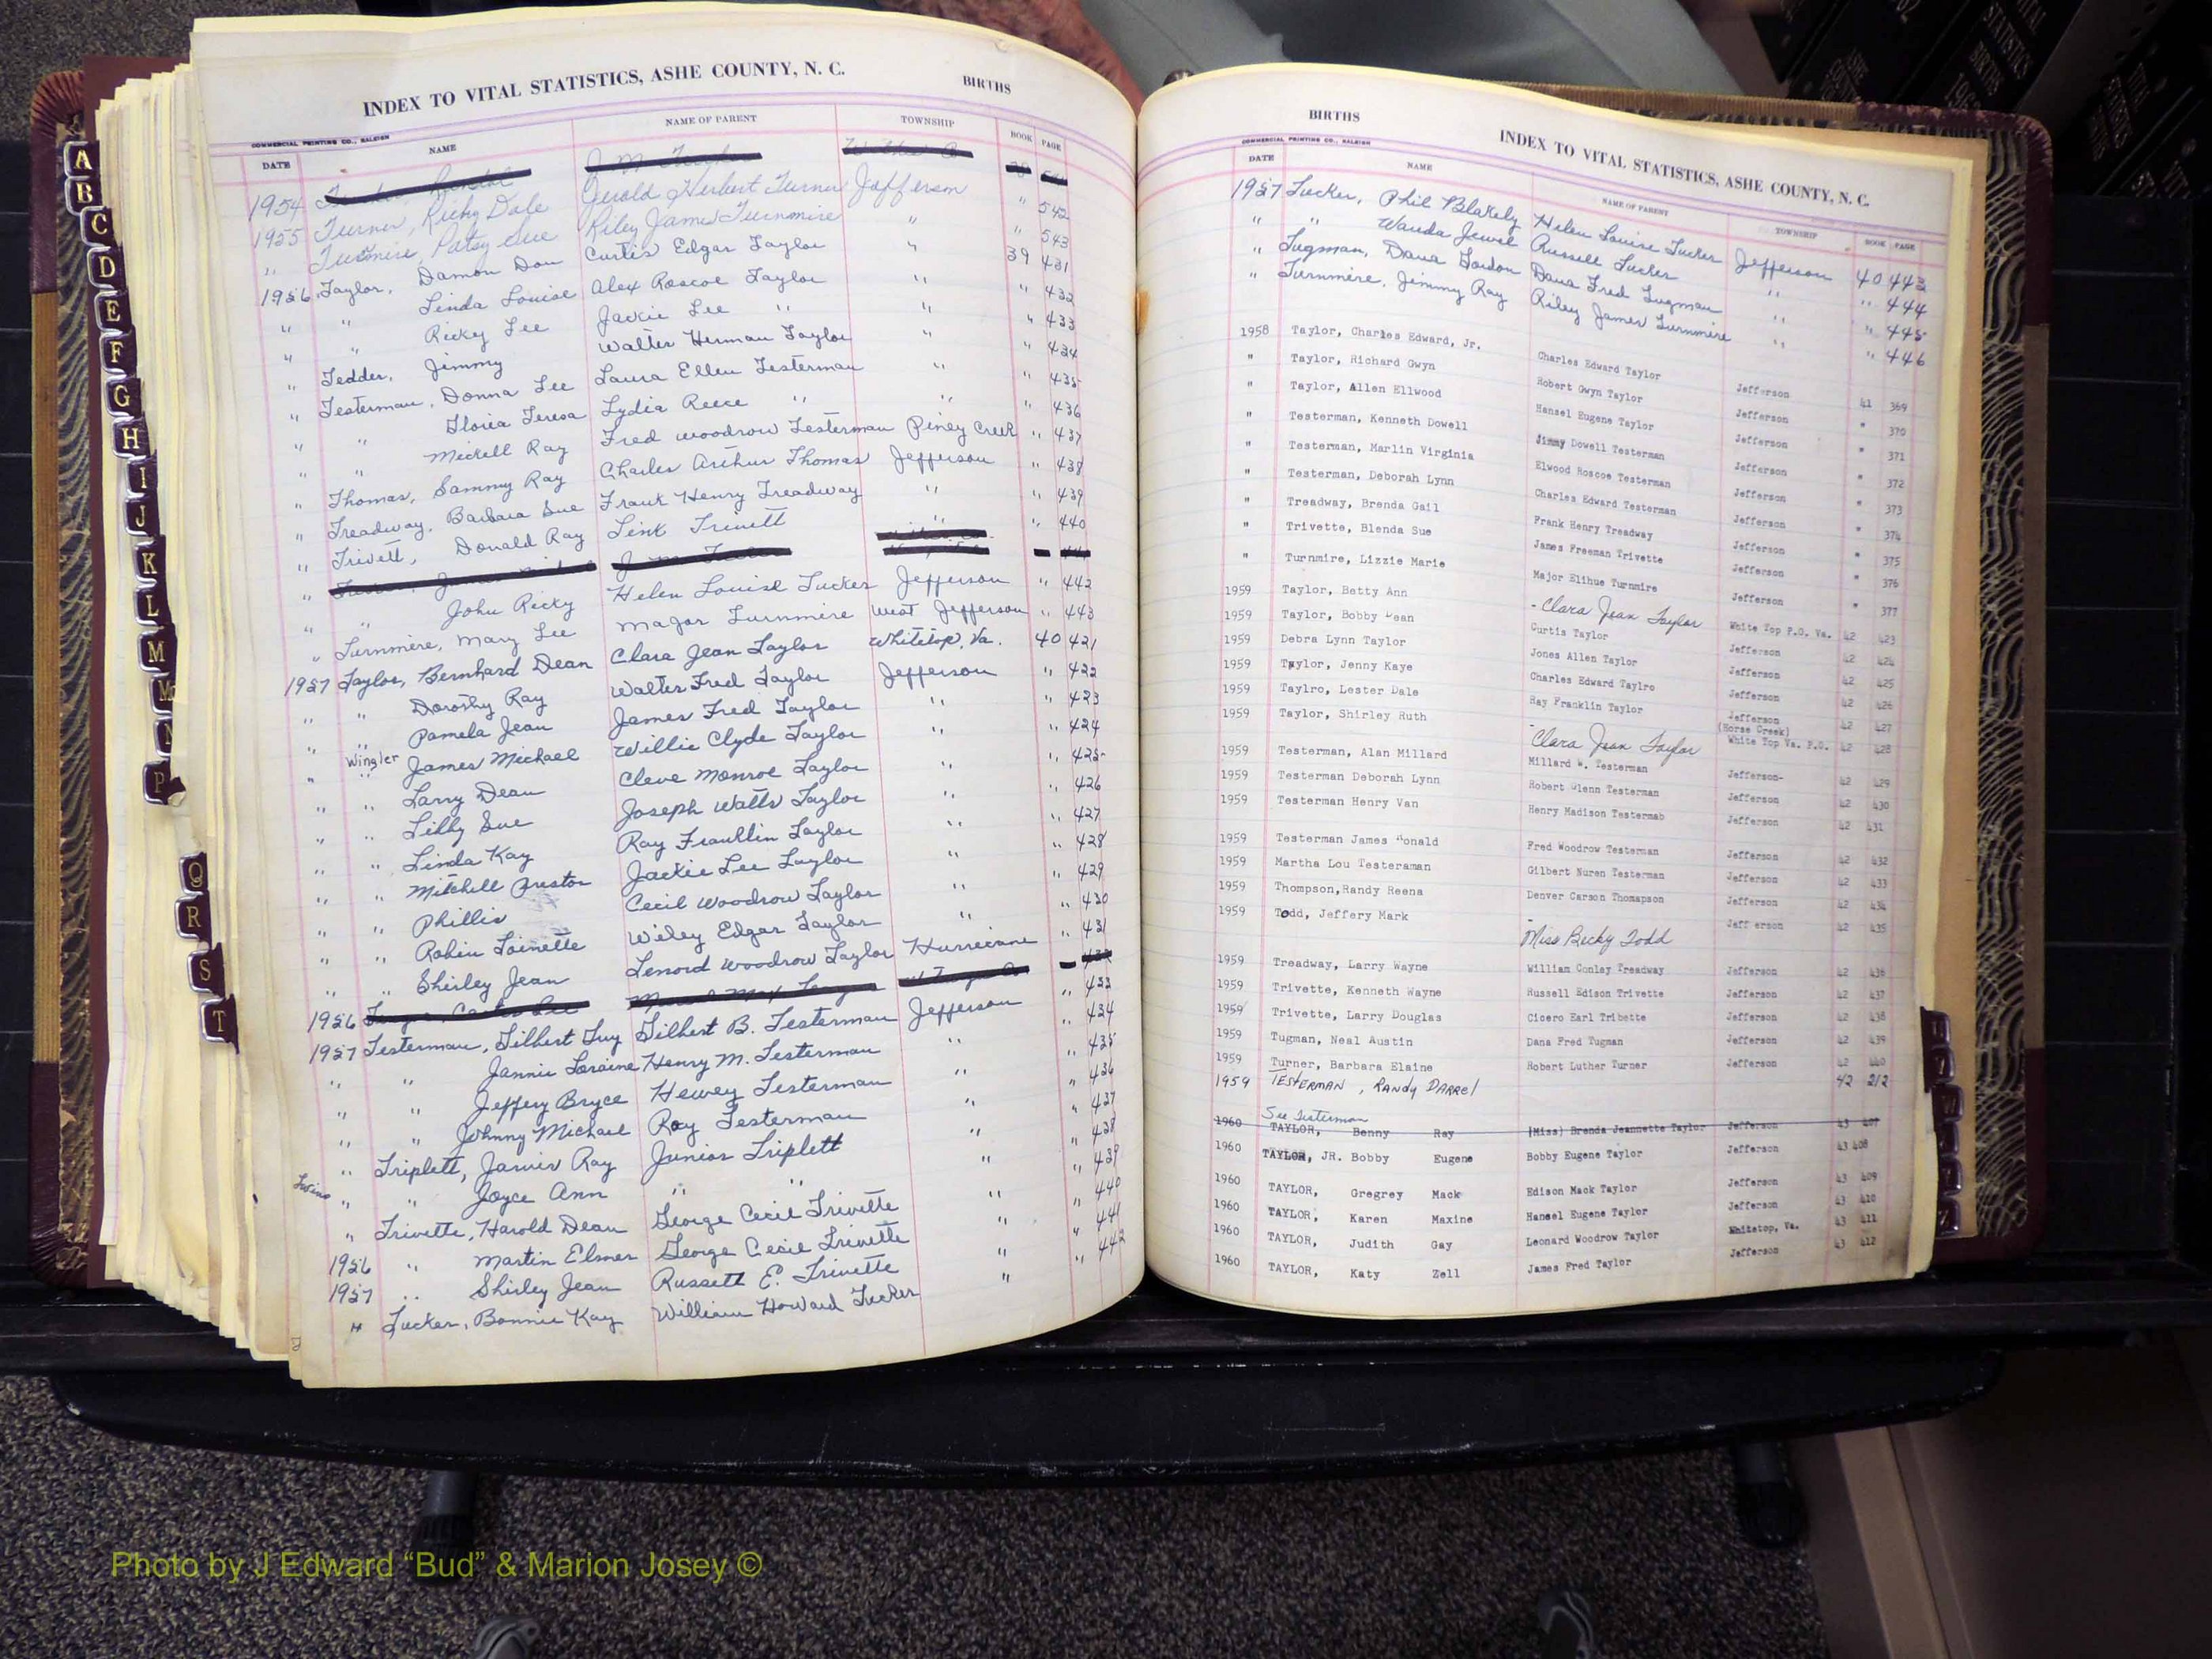 INDEX TO VITAL STATISTICS, ASHE COUNTY, N. C. BIRTHS
COMMERCIAL PRINTING CO., RALEIGH
DATE NAME NAME OF PARENT TOWNSHIP BOOK PAGE
1954 Turner, Richy Dale Gerold Herbert Turner Jefferson " 542
1955 Turnmire, Patsy Sue Riley James Turnmire " " 543
1956 Taylor, Damon Don Curtis Edgar Taylor " 39 431
" " Linda Louise Alex Roscoe Taylor " " 432
" " Ricky Lee Jackie Lee " " " 433
" Tedder, Jimmy Walter Herman Taylor " " 434
" Testerman, Donna Lee Laura Ellen Testerman " " 435
" " Gloria Teresa Lydia Reece " " " 436
" " Mickell Ray Fred Woodrow Testerman Piney Creek " 437
" Thomas, Sammy Ray Charles Arthur Thomas Jefferson " 438
" Treadway, Barbara Sue Frank Henry Treadway " " 439
" Trivett, Donald Ray Link Trivett " " 440
" " John Ricky Helen Louise Tucker Jefferson " 442
" Turnmire, Mary Lee Major Turnmire West Jefferson " 443
1957 Taylor, Bernhard Dean Clara Jean Taylor Whitetop, Va. 40 421
" " Dorothy Ray Walter Fred Taylor Jefferson " 422
" " Pamela Jean James Fred Taylor " " 423
" Wingler " James Michael Willie Clyde Taylor " " 424
" " Larry Dean Cleve Monroe Taylor " " 425
" " Lilly Sue Joseph Watts Taylor " " 426
" " Linda Kay Ray Franklin Taylor " " 427
" " Mitchell Preston Jackie Lee Taylor " " 428
" " Phillis Cecil Woodrow Taylor " " 429
" " Robin Toinette Wiley Edgar Taylor " " 430
" " Shirley Jean Lenord Woodrow Taylor Hurricane " 431
1956
1957 Testerman, Gilbert Guy Gilbert B. Testerman Jefferson " 433
" " Jannie Loraine Henry M. Testerman " " 434
" " Jeffery Bryce Hewey Testerman " " 435
" " Johnny Michael Roy Testerman " " 436
" Triplett, Jarvis Ray Junior Triplett " " 437
Twins " " Joyce Ann " " " " 438
" Trivette, Harold Dean George Cecil Trivette " " 439
1956 " Martin Elmer George Cecil Trivette " " 440
1957 " Shirley Jean Russell E. Trivette " " 441
" Tucker, Bonnie Kay William Howard Tucker " " 442
BIRTHS INDEX TO VITAL STATISTICS, ASHE COUNTY, N. C.
COMMERCIAL PRINTING CO., RALEIGH
DATE NAME NAME OF PARENT TOWNSHIP BOOK PAGE
1957 Tucker, Phil Blakely Helen Louise Tucker Jefferson 40 443
" " Wanda Jewel Russell Tucker " " 444
" Tugman, Dana Gordon Dana Fred Tugman " " 445
" Turnmire, Jimmy Ray Riley James Turnmire " " 446
1958 Taylor, Charles Edward, Jr. Charles Edward Taylor Jefferson 41 369
" Taylor, Richard Gwyn Robert Gwyn Taylor Jefferson " 370
" Taylor, Allen Ellwood Hansel Eugene Taylor Jefferson " 371
" Testerman, Kenneth Dowell Jimmy Dowell Testerman Jefferson " 372
" Testerman, Marlin Virginia Elwood Roscoe Testerman Jefferson " 373
" Testerman, Deborah Lynn Charles Edward Testerman Jefferson " 374
" Treadway, Brenda Gail Frank Henry Treadway Jefferson " 375
" Trivette, Blenda Sue James Freeman Trivette Jefferson " 376
" Turnmire, Lizzie Marie Major Elihue Turnmire Jefferson " 377
1959 Taylor, Betty Ann - Clara Jean Taylor White Top P.O. Va. 42 423
1959 Taylor, Bobby Dean Curtis Taylor Jefferson 42 424
1959 Debra Lynn Taylor Jones Allen Taylor Jefferson 42 425
1959 Taylor, Jenny Kaye Charles Edward Taylro Jefferson 42 426
1959 Taylro, Lester Dale Ray Franklin Taylor Jefferson (Horse Creek) 42 427
1959 Taylor, Shirley Ruth - Clara Jean Taylor White Top Va. P.O. 42 428
1959 Testerman, Alan Millard Millard W. Testerman Jefferson- 42 429
1959 Testerman Deborah Lynn Robert Glenn Testerman Jefferson 42 430
1959 Testerman Henry Van Henry Madison Testermab Jefferson 42 431
1959 Testerman James Ronald Fred Woodrow Testerman Jefferson 42 432
1959 Martha Lou Testeraman Gilbert Nuren Testerman Jefferson 42 433
1959 Thompson,Randy Reena Denver Carson Thomapson Jefferson 42 434
1959 Todd, Jeffery Mark - Miss Becky Todd Jeff erson 42 435
1959 Treadway, Larry Wayne William Conley Treadway Jefferson 42 436
1959 Trivette, Kenneth Wayne Russell Edison Trivette Jefferson 42 437
1959 Trivette, Larry Douglas Cicero Earl Tribette Jefferson 42 438
1959 Tugman, Neal Austin Dana Fred Tugman Jefferson 42 439
1959 Turner, Barbara Elaine Robert Luther Turner Jefferson 42 440
1959 TESTERMAN, RANDY DARREL 42 212
See Testerman
1960 TAYLOR, Benny Ray (Miss) Brenda Jeannette Taylor Jefferson 43 407
1960 TAYLOR, JR. Bobby Eugene Bobby Eugene Taylor Jefferson 43 408
1960 TAYLOR, Gregrey Mack Edison Mack Taylor Jefferson 43 409
1960 TAYLOR, Karen Maxine Hansel Eugene Taylor Jefferson 43 410
1960 TAYLOR, Judith Gay Leonard Woodrow Taylor Whitetop, Va. 43 411
1960 TAYLOR, Katy Zell James Fred Taylor Jefferson 43 412
A
B
C
D
E
F
G
H
I
J
K
L
M
Mc
N
P
Q
R
S
T
Photo by J Edward “Bud” & Marion Josey ©